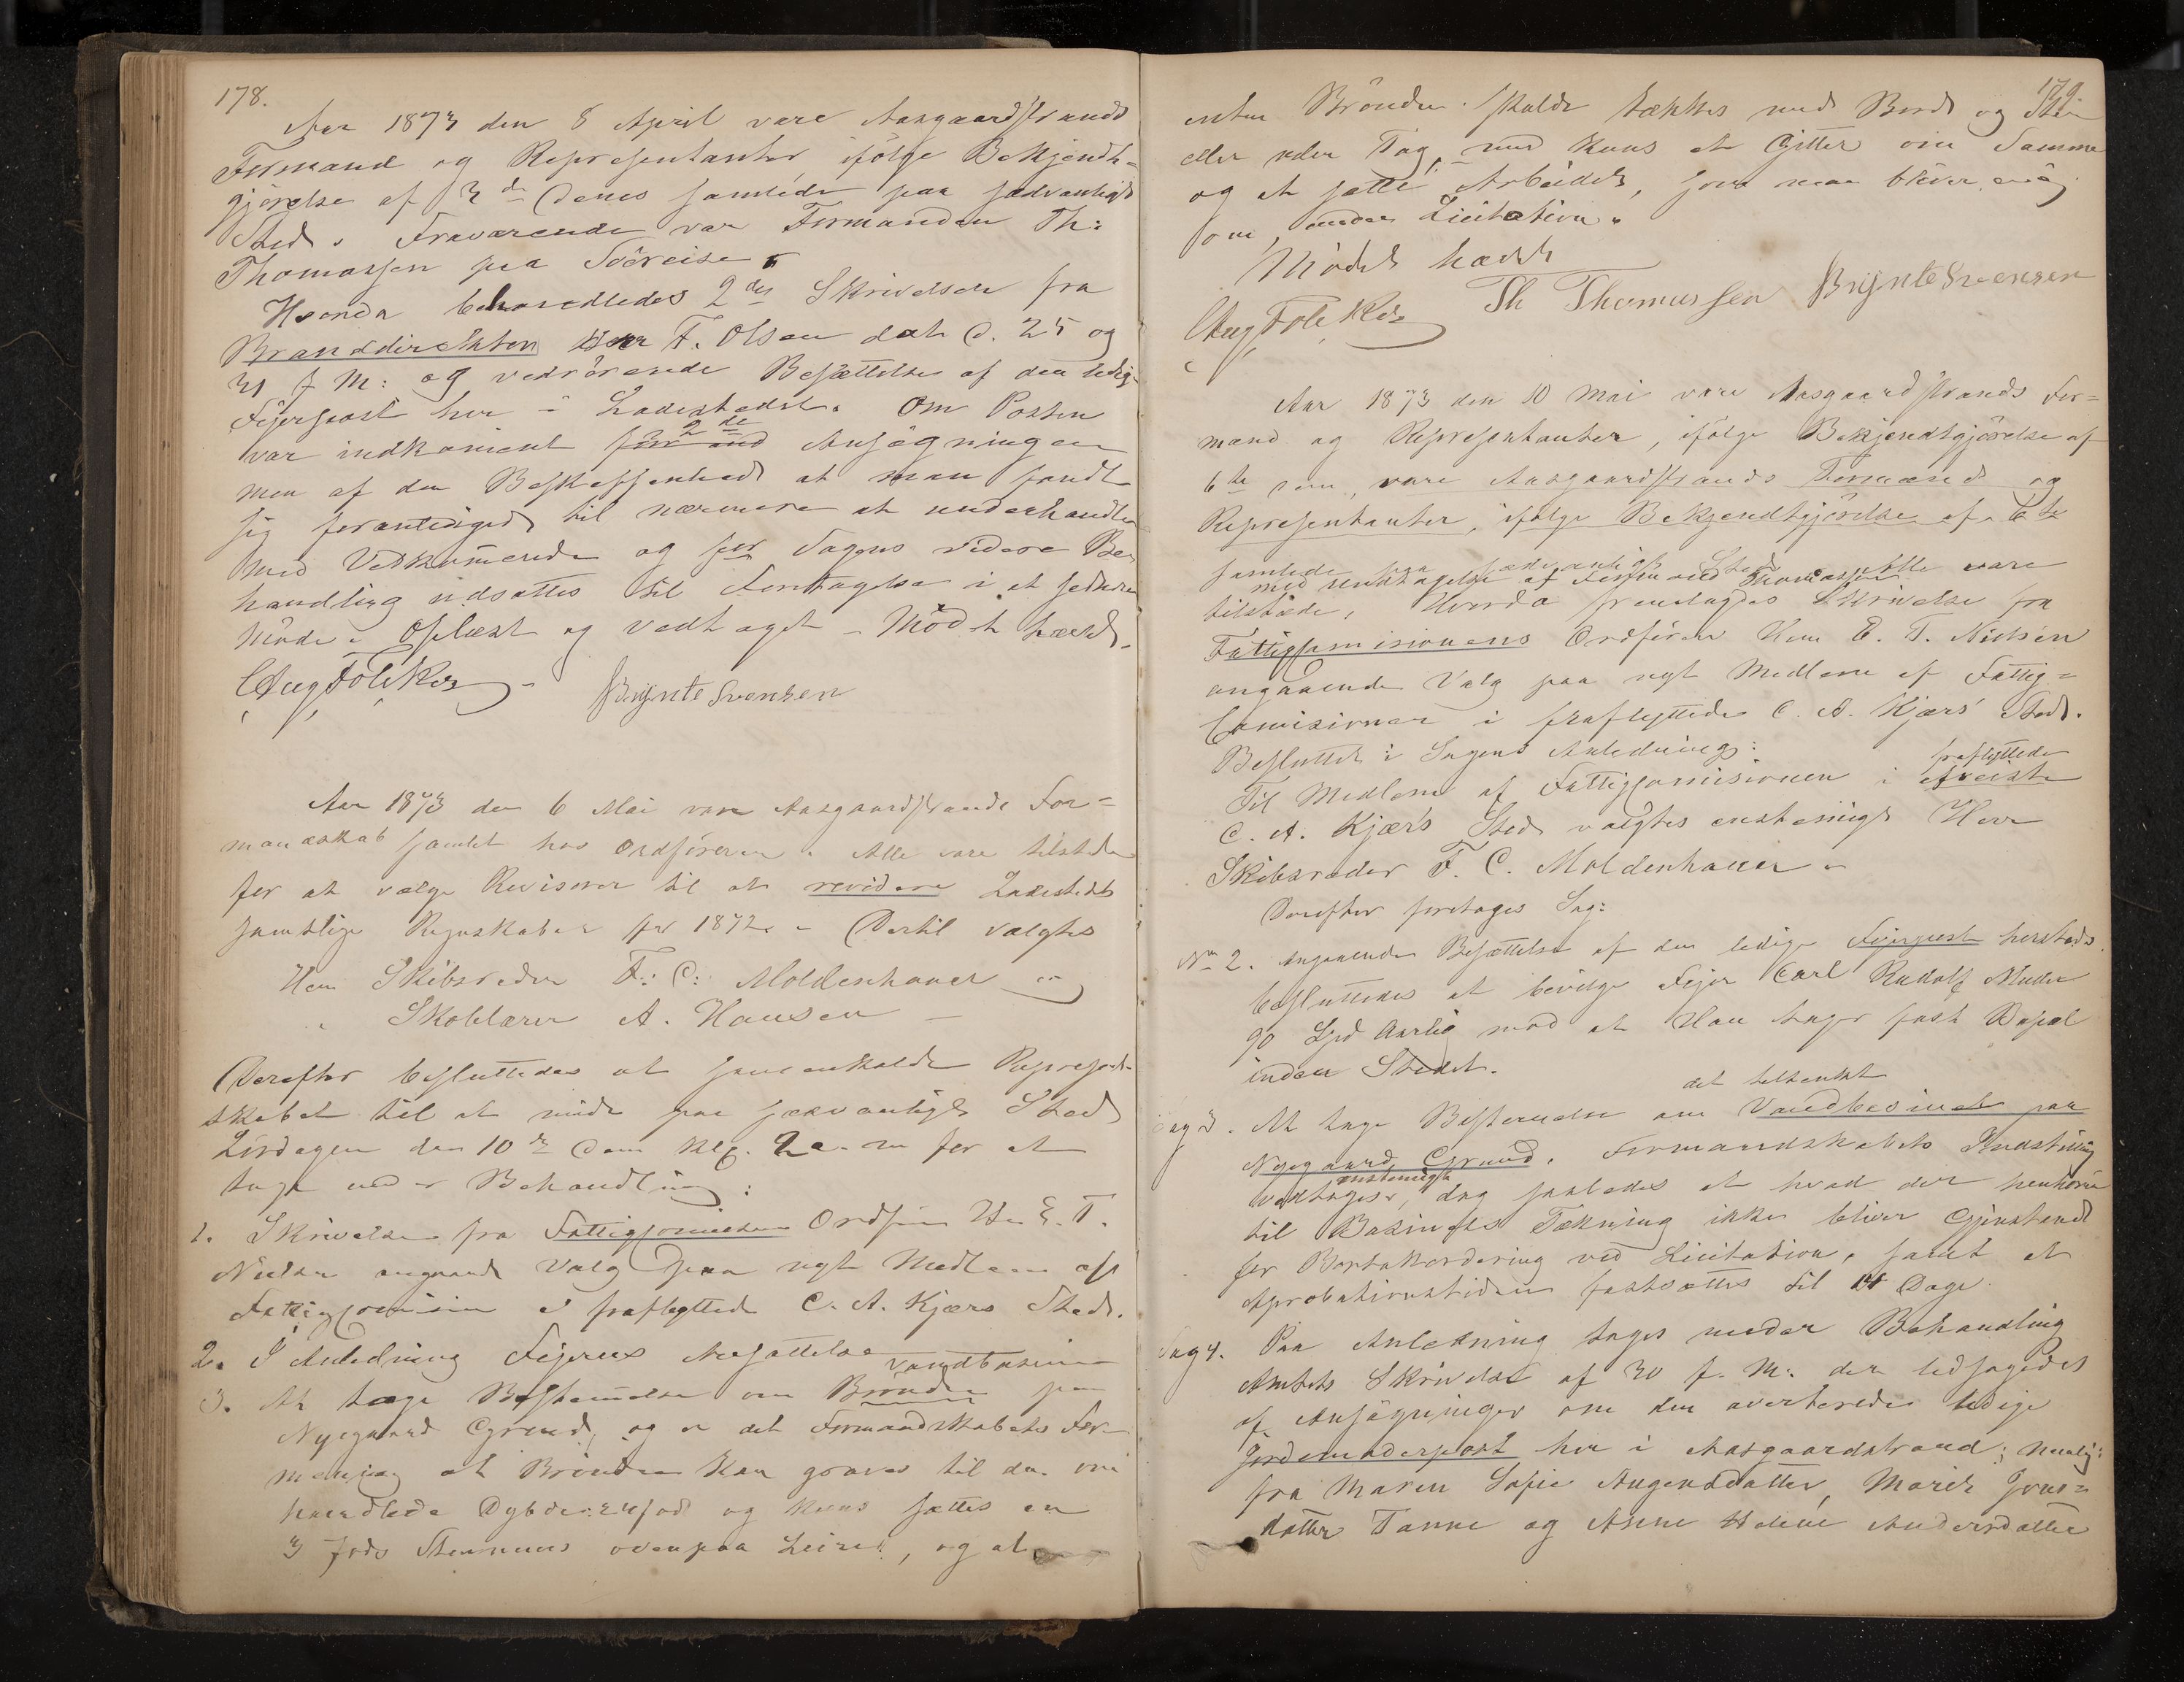 178.
Aar 1873 den 8 April vare Aasgaardstrands
Formænd og Representanter, ifölge Bekjendt-
gjörelse af 3de Denes samlede paa sædvanligt
Sted. Fraværende var Formanden Th:
Thomassen paa Söereise.
Hvorda behandledes 2de Skrivelser fra
Branddirektøren Herr F. Olsen dat. d. 25 og
31 f M: og vedrörende Besættelse af den ledige
Fejerpost her i Ladestedet. Om Posten
var indkomment 2de Ansögningen
men af den Beskaffenhed at man fandt
sig foranlediget til nærmere at underhandle
med Vedkommende og for Sagens videre Be-
handling udsattes til Foretagelse i et senere
Möde. Oplæst og vedtaget - Mödet hævet.
Aug Folkes Brynte Svensen
Aar 1873 den 6 Mai vare Aasgaardstrands For-
mandskab samlet hos Ordföreren. Alle vare tilstede
for at vælge Revisorer til at revidere Ladestedets
samtlige Regnskaber for 1872. - Dertil valgtes
Herr Skibsreder F: C: Moldenhauer og
" Skolelærer A. Hansen -
Derefter besluttedes at sammenkalde Represent-
skabet til at möde paa sædvanligt Sted
Lördagen den 10de Dennes Klp. 2 e. m for at
tage under Behandling:
1. Skrivelse fra Fattigcommisionens Ordförer Hr E. T.
Nielsen angaaende Valg paa nyt Medlem af
Fattigcomision i fraflyttede C. A. Kjærs Sted.
2. I Anledning Fejerens Ansættelse
Vandbasin
3. At tage Bestemmelse om Brönden paa
Nygaards Grund, og er det Formandskabets For-
mening at Brönden kan graves til den om
handlede Dybde: 24 fod og kuns sættes en
3 fods Steenmuur ovenpaa Leiret, og at
179.
enten Brönden skulde tækkes med Bord og Steen
eller uden Tag, med kuns et Gitter om Samme
og at sætte Arbeidet, som man bliver enig
om, under Licitation.
Mödet hævet
Aug Folkes Th Thomassen Brynte Svensen
Aar 1873 den 10 Mai vare Aasgaardstrands For-
mænd og Representanter, ifölge Bekjendtgjörelse af
6te den, vare Aasgaardstrands Formænd og
Representanter, ifölge Bekjendtgjörelse af 6te
samlede paa sædvanligt Sted. Alle vare
med undtagelse af Formand Thomassen
tilstæde. Hvorda fremlagdes Skrivelse fra
Fattigcomisionens Ordförer Herr E. T. Nielsen
angaaende Valg paa nyt Medlem af Fattig-
Comisionen i fraflyttede C. A. Kjærs Sted.
Besluttet i Sagens Anledning:
fraflyttede
Til Medlem af Fattigcomisionen i Afreiste
C. A. Kjær's Sted valgtes enstemmigt Herr
Skibsreder F. C. Moldenhauer -
Derefter foretages Sag:
No 2. angaaende Besættelse af den ledige Fejerpost hersteds
besluttedes at bevilge Fejer Carl Rudolf Müller
90 Spd Aarlig mod at Han tager fast Bopæl
inden Stedet.
det paatænkt
Sag 3. At tage Bestemmelse om Vandbasinet paa
Nygaards Grund. Formandskabets Indstilling
enstemmigt
vedtages, dog saaledes at hvad der henhörer
til Basinets Tækning ikke bliver Gjenstand
for Bortakkordering ved Licitation, samt at
Aprobationstiden fastsættes til 14 Dage
Sag 4. Paa Anledning tages under Behandling
Amtets Skrivelse af 30 f. M. der ledsagedes
af Ansögninger om den averterede ledige
Jordemoderpost her i Aasgaardstrand; nemlig:
fra Maren Sofie Augensdatter, Marie Jens-
datter Tanne og Anne Helene Andersdatter